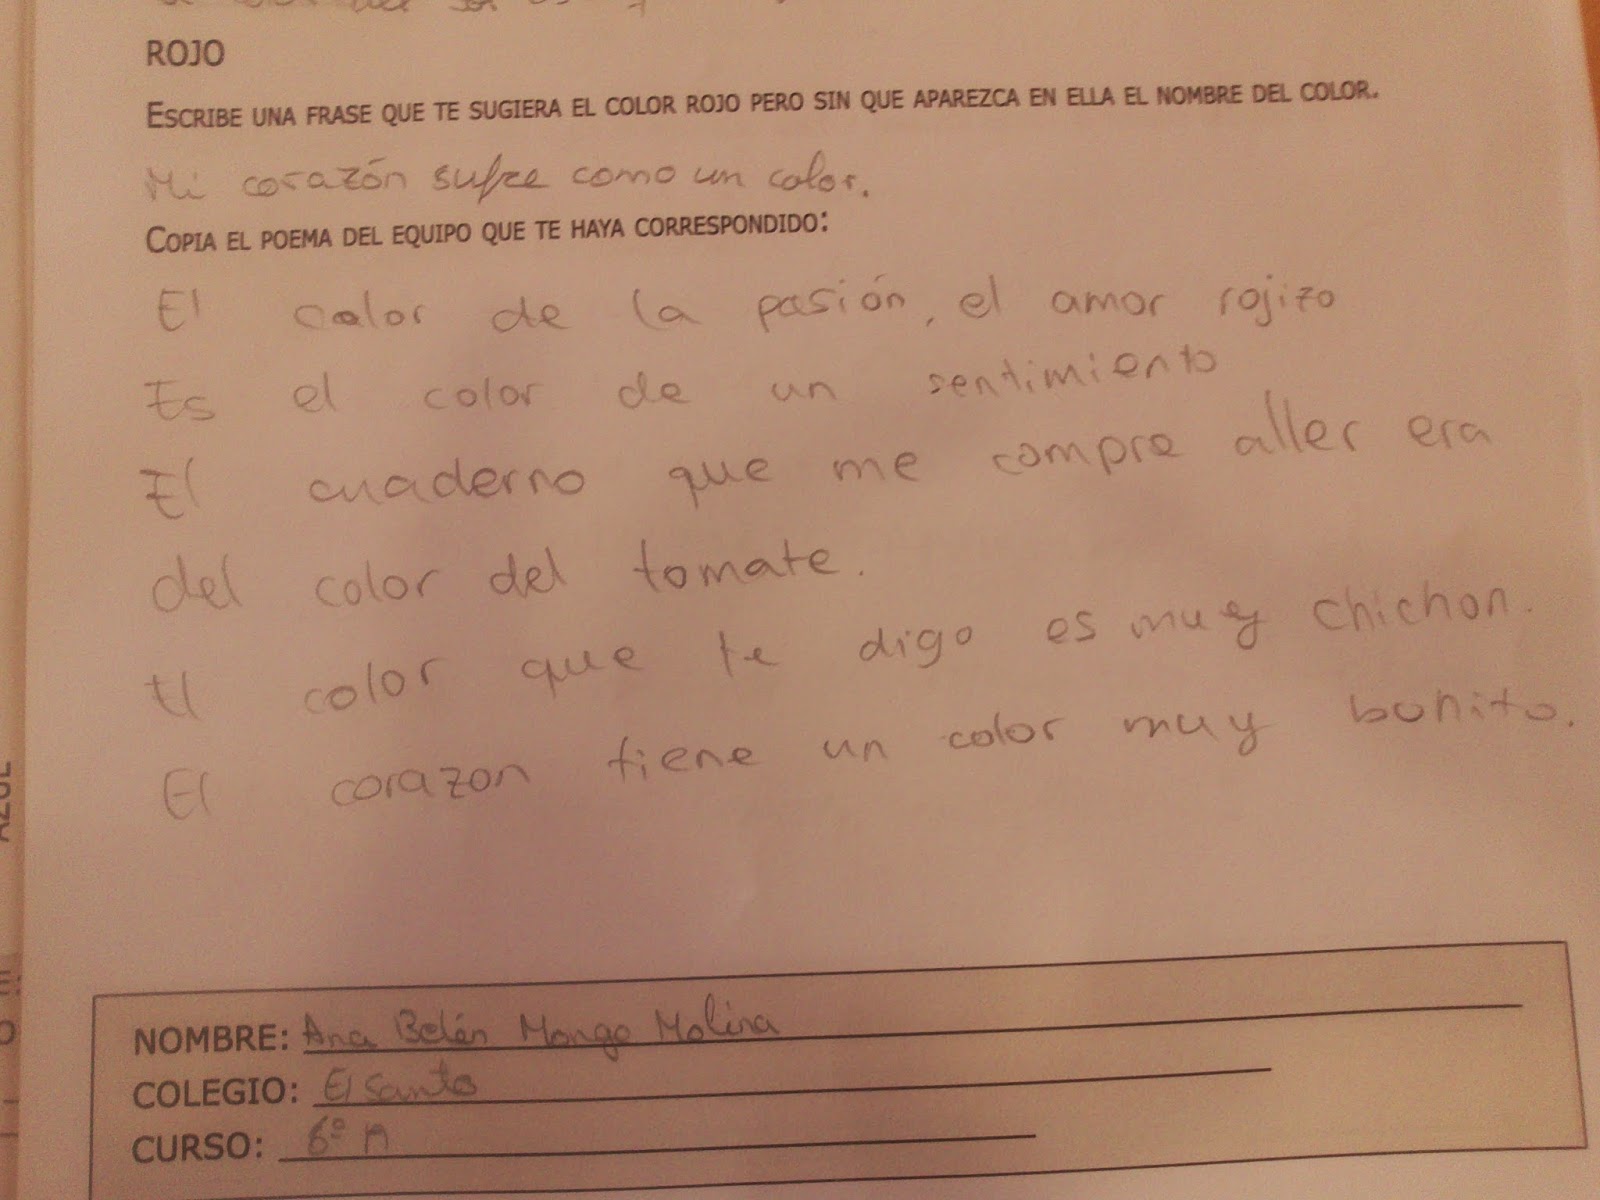 ROJO
ESCRIBE UNA FRASE QUE TE SUGIERA EL COLOR ROJO PERO SIN QUE APAREZCA EN ELLA EL NOMBRE DEL COLOR.
Mi corazón sufre como un color.
COPIA EL POEMA DEL EQUIPO QUE TE HAYA CORRESPONDIDO:
El color de la pasión, el amor rojizo
Es el color de un sentimiento
El cuaderno que me compre aller era
del color del tomate.
El color que te digo es muy chichon.
El corazon tiene un color muy bonito.
AZUL
NOMBRE: Ana Belén Monge Molina
COLEGIO: El Santo
CURSO: 6º A